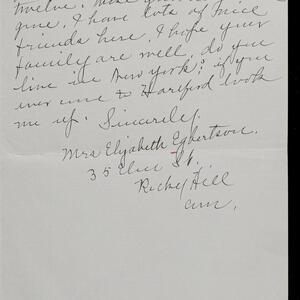 twelve.
give, I have lots of nice
friends here. I hope your
family are well. do you
live in New York? if you
ever come to Hartford look
me up. Sincerely.
Mrs Elizabeth Egbertson.
35 Elm St.
Rocky Hill
Conn.